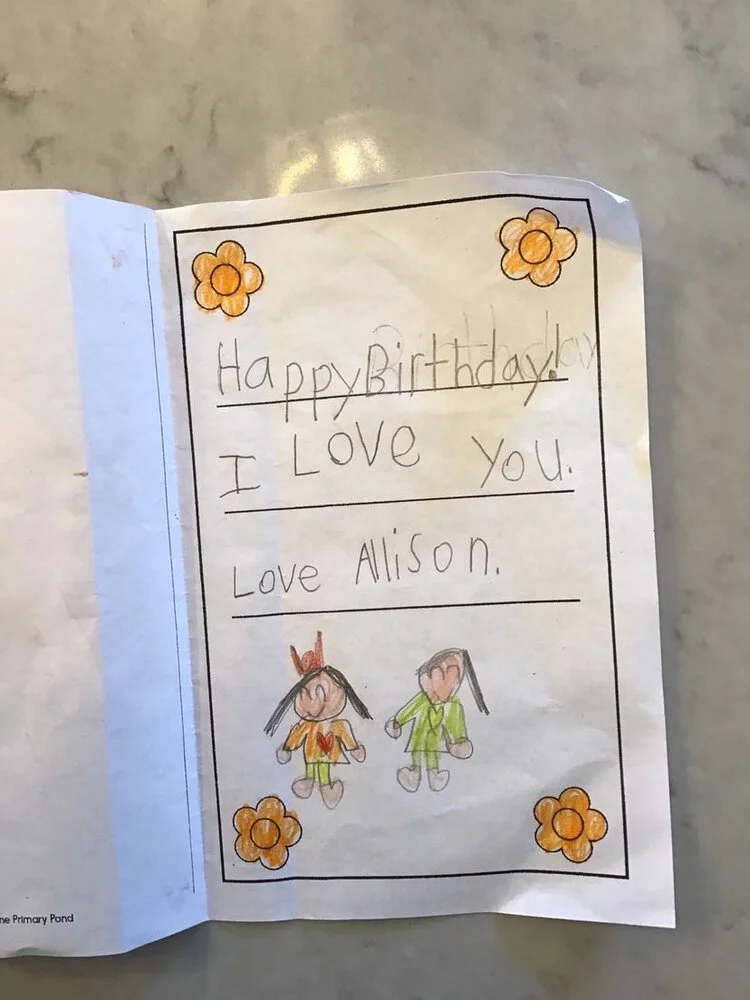 Happy Birthday!
I Love You.
Love Allison.
ne Primary Pond